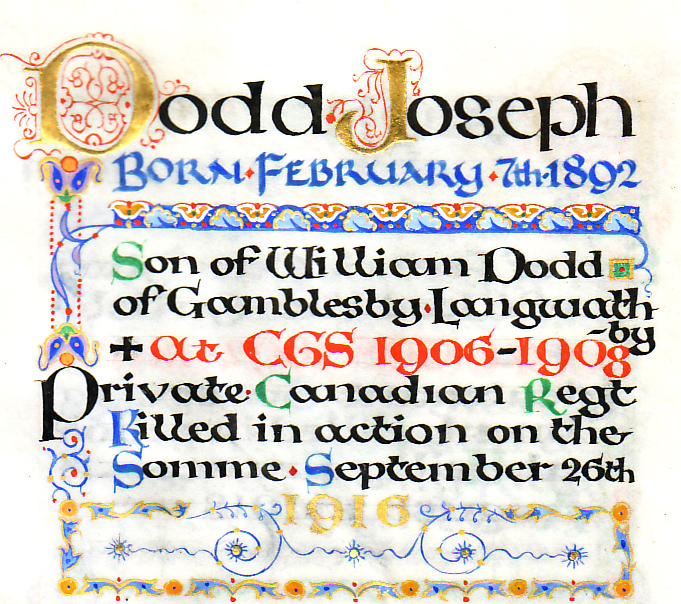 Dodd·Joseph
Born·February·7th·1892
Son of William Dodd
of Gamblesby·Langwath
-by
+ at CGS 1906-1908
Private·Canadian Regt
Killed in action on the
Somme·September 26th
1916